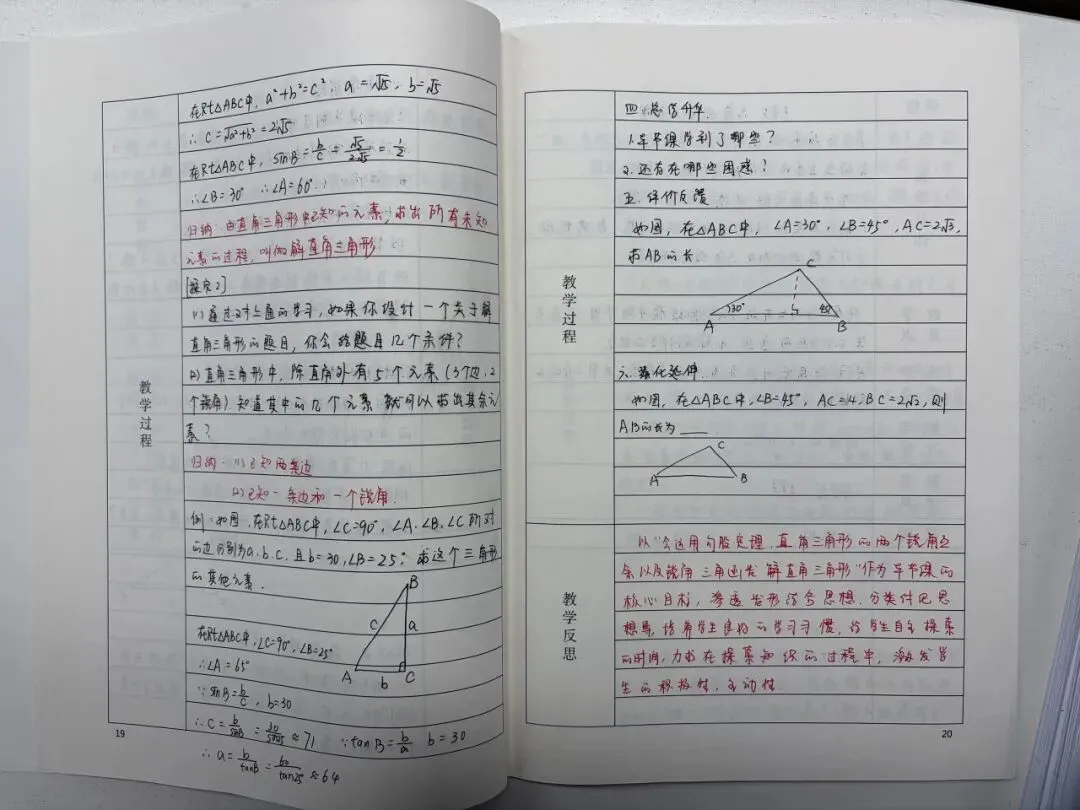 教学过程
在Rt△ABC中, a²+b²=c², a=√15, b=√5
∴ c=√a²+b²=2√5
在Rt△ABC中, sinB=b/c=√5/2√5=1/2
∴∠B=30° ∴∠A=60°
归纳:由直角三角形中已知的元素,求出所有未知
元素的过程,叫做解直角三角形
[探究2]
(1)通过对上面的学习,如果你设计一个关于解
直角三角形的题目,你会给题目几个条件?
(2)直角三角形中,除直角外有5个元素(3个边,2
个锐角).知道其中的几个元素,就可以求出其余元
素?
归纳:(1)已知两条边
(2)已知一条边和一个锐角.
例:如图,在Rt△ABC中,∠C=90°,∠A、∠B、∠C所对
的边分别为a.b.c,且b=30,∠B=25°,求这个三角形
的其他元素.
B
c
a
A
b
C
在Rt△ABC中,∠C=90°,∠B=25°
∴∠A=65°
∵sinB=b/c, b=30
∴c=b/sinB=30/sin25≈71 ∵tanB=b/a b=30
∴a=b/tanB=30/tan25°≈64
19
教学过程
四.总结升华
1.本节课学到了哪些?
2.还存在哪些困惑?
五.评价反馈
如图,在△ABC中,∠A=30°,∠B=45°,AC=2√3,
求AB的长
C
30°
45°
A
B
六.强化延伸.
如图,在△ABC中,∠B=45°,AC=14,BC=2√2,则
AB的长为___
C
A
B
教学反思
以“会运用勾股定理,直角三角形的两个锐角互
余以及锐角三角函数解直角三角形”作为本节课的
核心目标,渗透数形结合思想,分类讨论思
想等,培养学生良好的学习习惯,给学生自主探索
的时间,力求在探索知识的过程中,激发学
生的积极性,主动性.
20